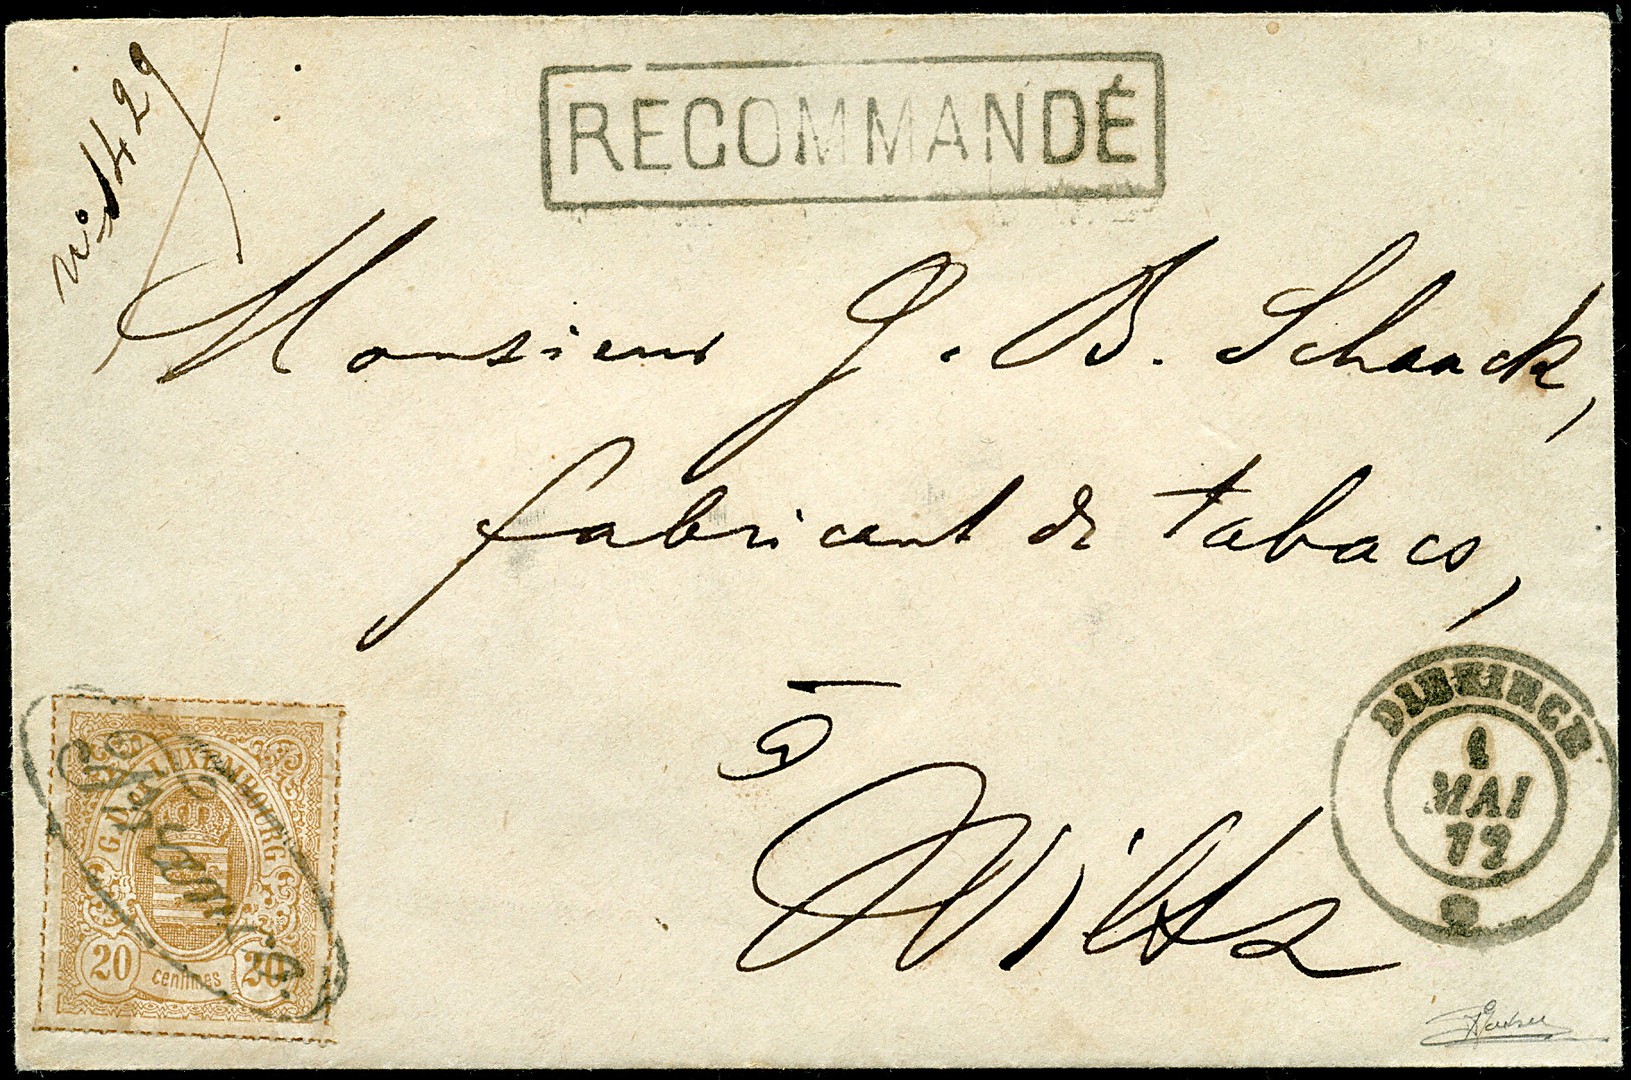 n° 1429
RECOMMANDÉ
Monsieur J. B. Schaack,
fabricant de tabacs,
à
Wiltz
DIEKIRCH
1
MAI
72
G. D. DE LUXEMBOURG
20 centimes 20